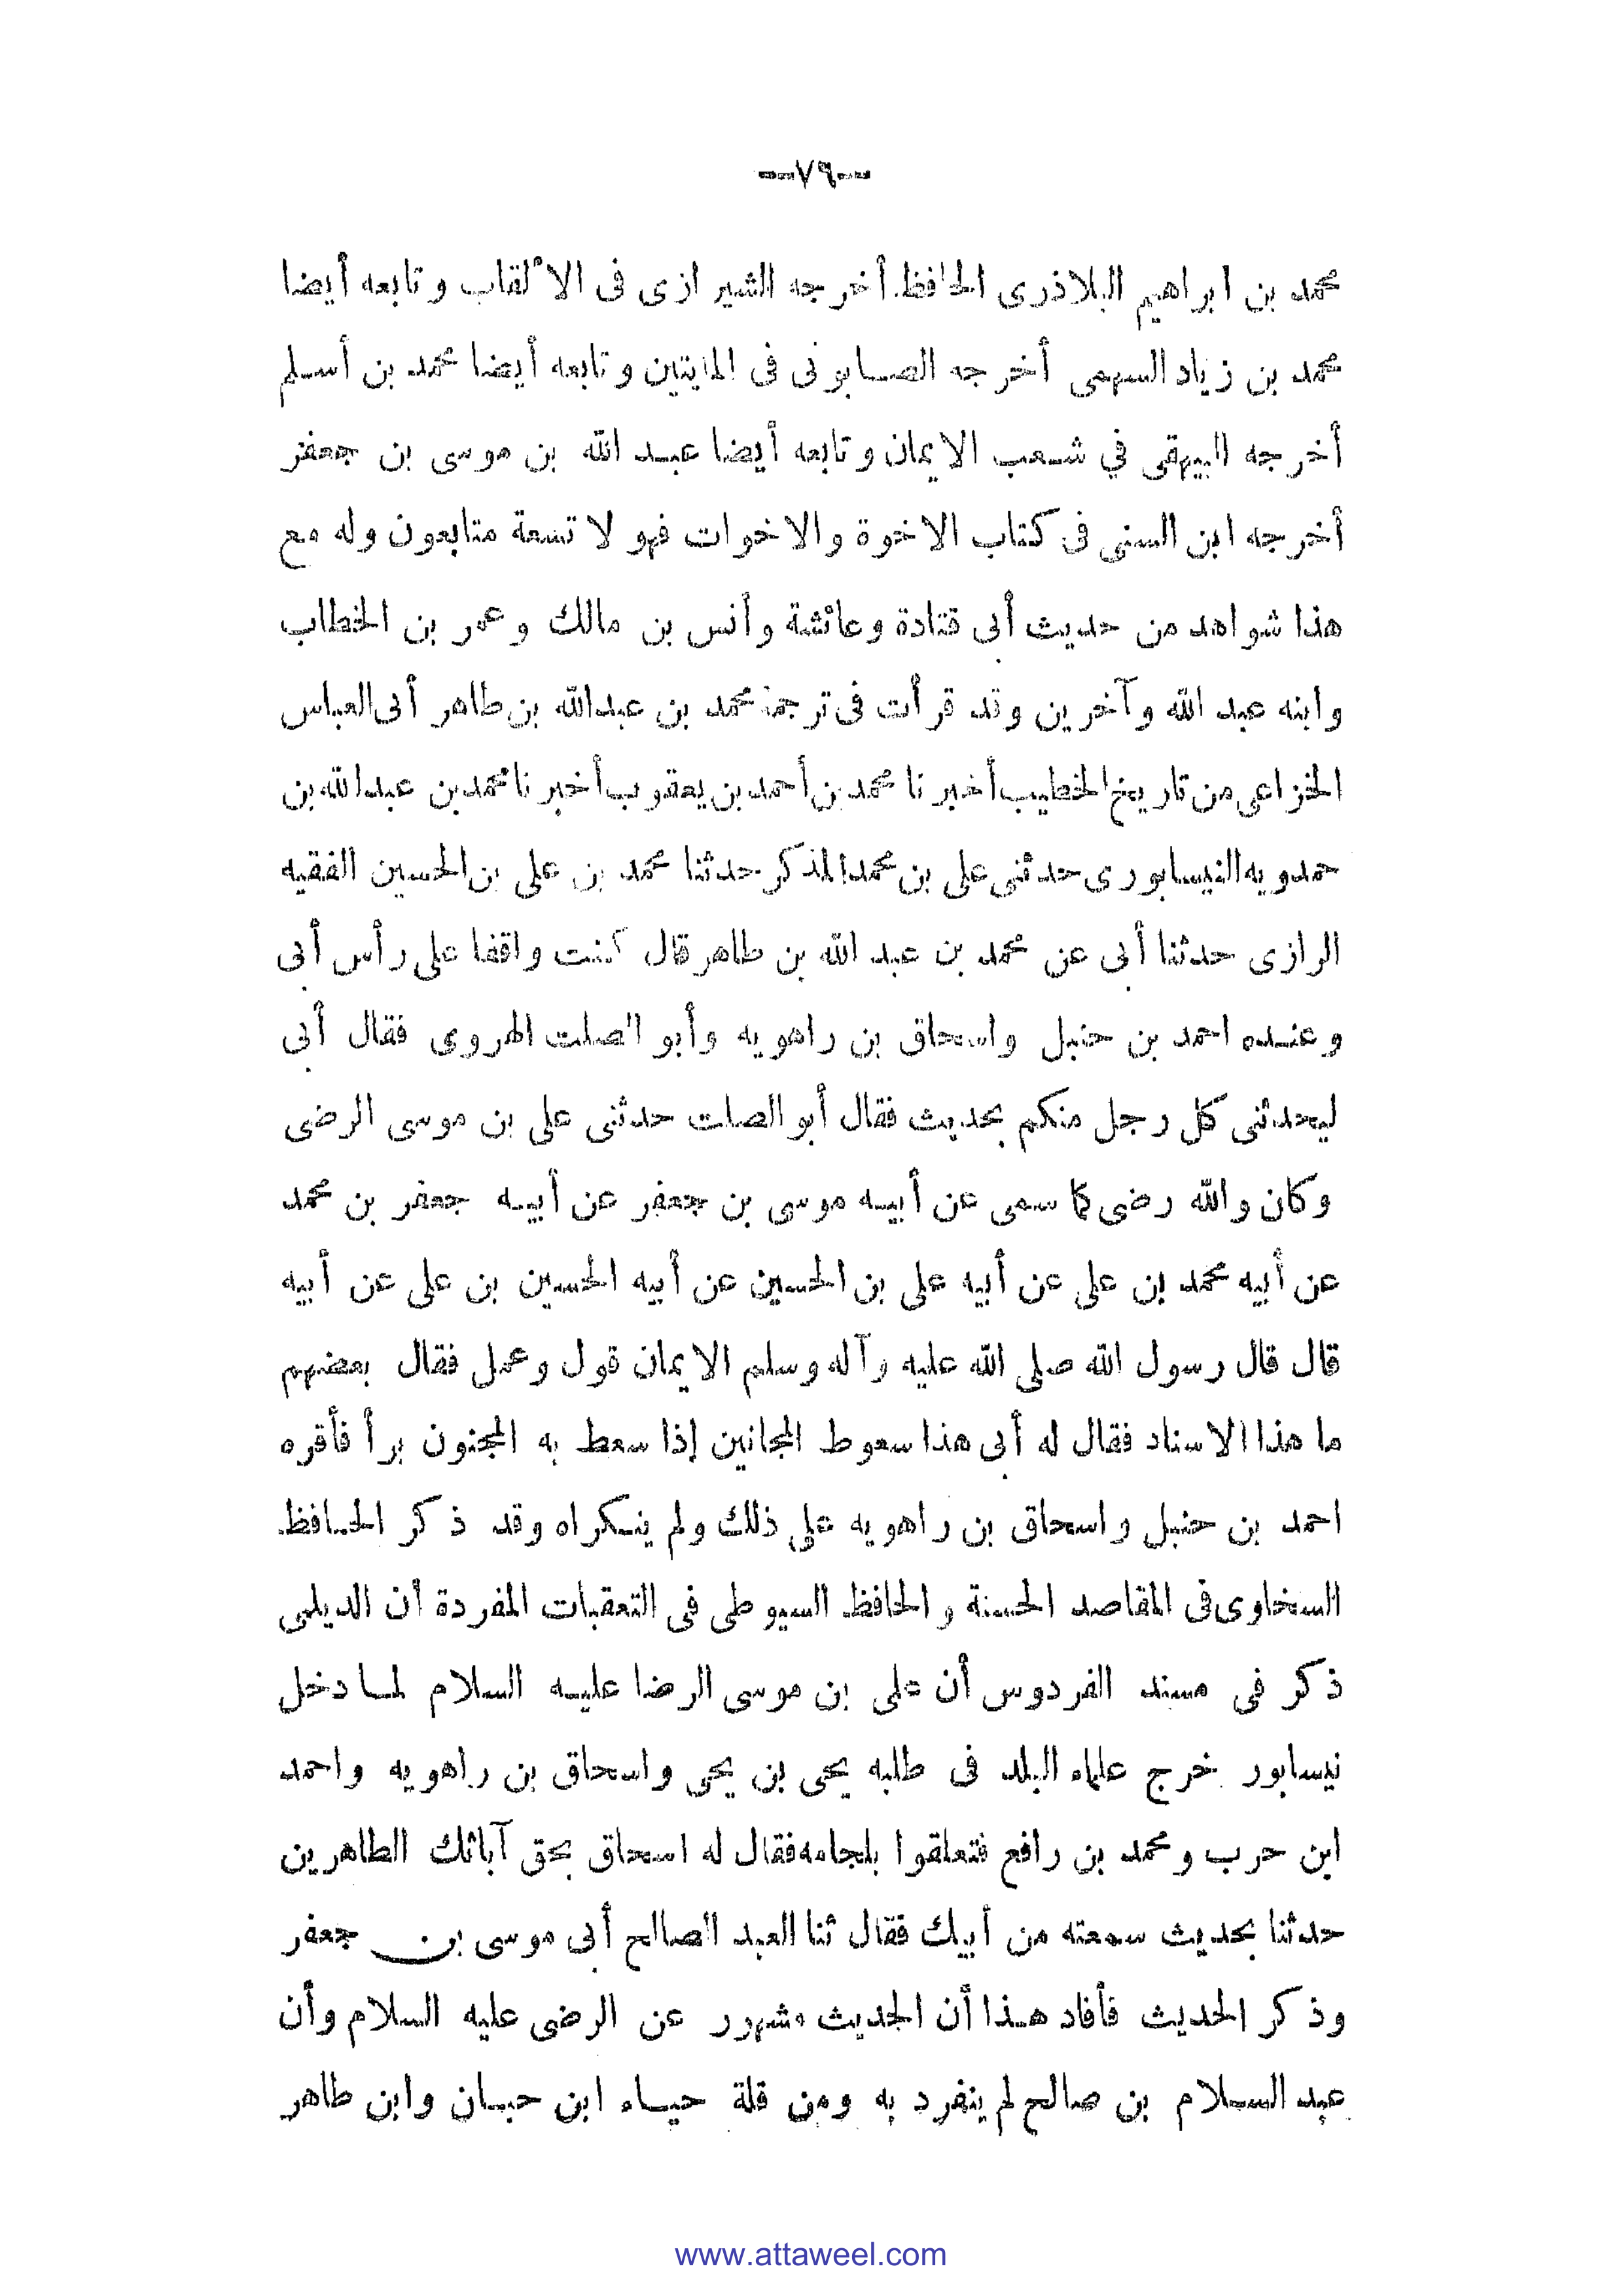 --٧٩--
محمد بن ابراهيم البلاذرى الحافظ أخرجه الشيرازى فى الألقاب وتابعه أيضا
محمد بن زياد السهمى أخرجه الصابونى فى المايتين وتابعه أيضا محمد بن أسلم
أخرجه البيهقى في شعب الايمان وتابعه أيضا عبد الله بن موسى بن جعفر
أخرجه ابن السنى فى كتاب الاخوة والاخوات فهولا تسعة متابعون وله مع
هذا شواهد من حديث أبى قتادة وعائشة وأنس بن مالك وعمر بن الخطاب
وابنه عبد الله وآخرين وقد قرأت فى ترجمة محمد بن عبدالله بن طاهر أبى العباس
الخزاعى من تاريخ الخطيب أخبرنا محمد بن أحمد بن يعقوب أخبرنا محمد بن عبدالله بن
حمدويه النيسابورى حدثنى على بن محمد المذكر حدثنا محمد بن على بن الحسين الفقيه
الرازى حدثنا أبى عن محمد بن عبد الله بن طاهر قال كنت واقفا على رأس أبى
وعنده احمد بن حنبل واسحاق بن راهويه وأبو الصلت الهروى فقال أبى
ليحدثنى كل رجل منكم بحديث فقال أبو الصلت حدثنى على بن موسى الرضى
وكان والله رضى كما سمى عن أبيه موسى بن جعفر عن أبيه جعفر بن محمد
عن أبيه محمد بن على عن أبيه على بن الحسين عن أبيه الحسين بن على عن أبيه
قال قال رسول الله صلى الله عليه وآله وسلم الايمان قول وعمل فقال بعضهم
ما هذا الاسناد فقال له أبى هذا سعوط المجانين إذا سعط به المجنون برأ فأقره
احمد بن حنبل واسحاق بن راهويه على ذلك ولم ينكراه وقد ذكر الحافظ
السخاوى فى المقاصد الحسنة والحافظ السيوطى فى التعقبات المفردة أن الديلمى
ذكر فى مسند الفردوس أن على بن موسى الرضا عليه السلام لما دخل
نيسابور خرج علماء البلد فى طلبه يحى بن يحي واسحاق بن راهويه واحمد
ابن حرب ومحمد بن رافع فتعلقوا بلجامه فقال له اسحاق بحق آبائك الطاهرين
حدثنا بحديث سمعته من أبيك فقال ثنا العبد الصالح أبى موسى بن جعفر
وذكر الحديث فأفاد هذا أن الحديث مشهور عن الرضى عليه السلام وأن
عبد السلام بن صالح لم ينفرد به ومن قلة حياء ابن حبان وابن طاهر
www.attaweel.com